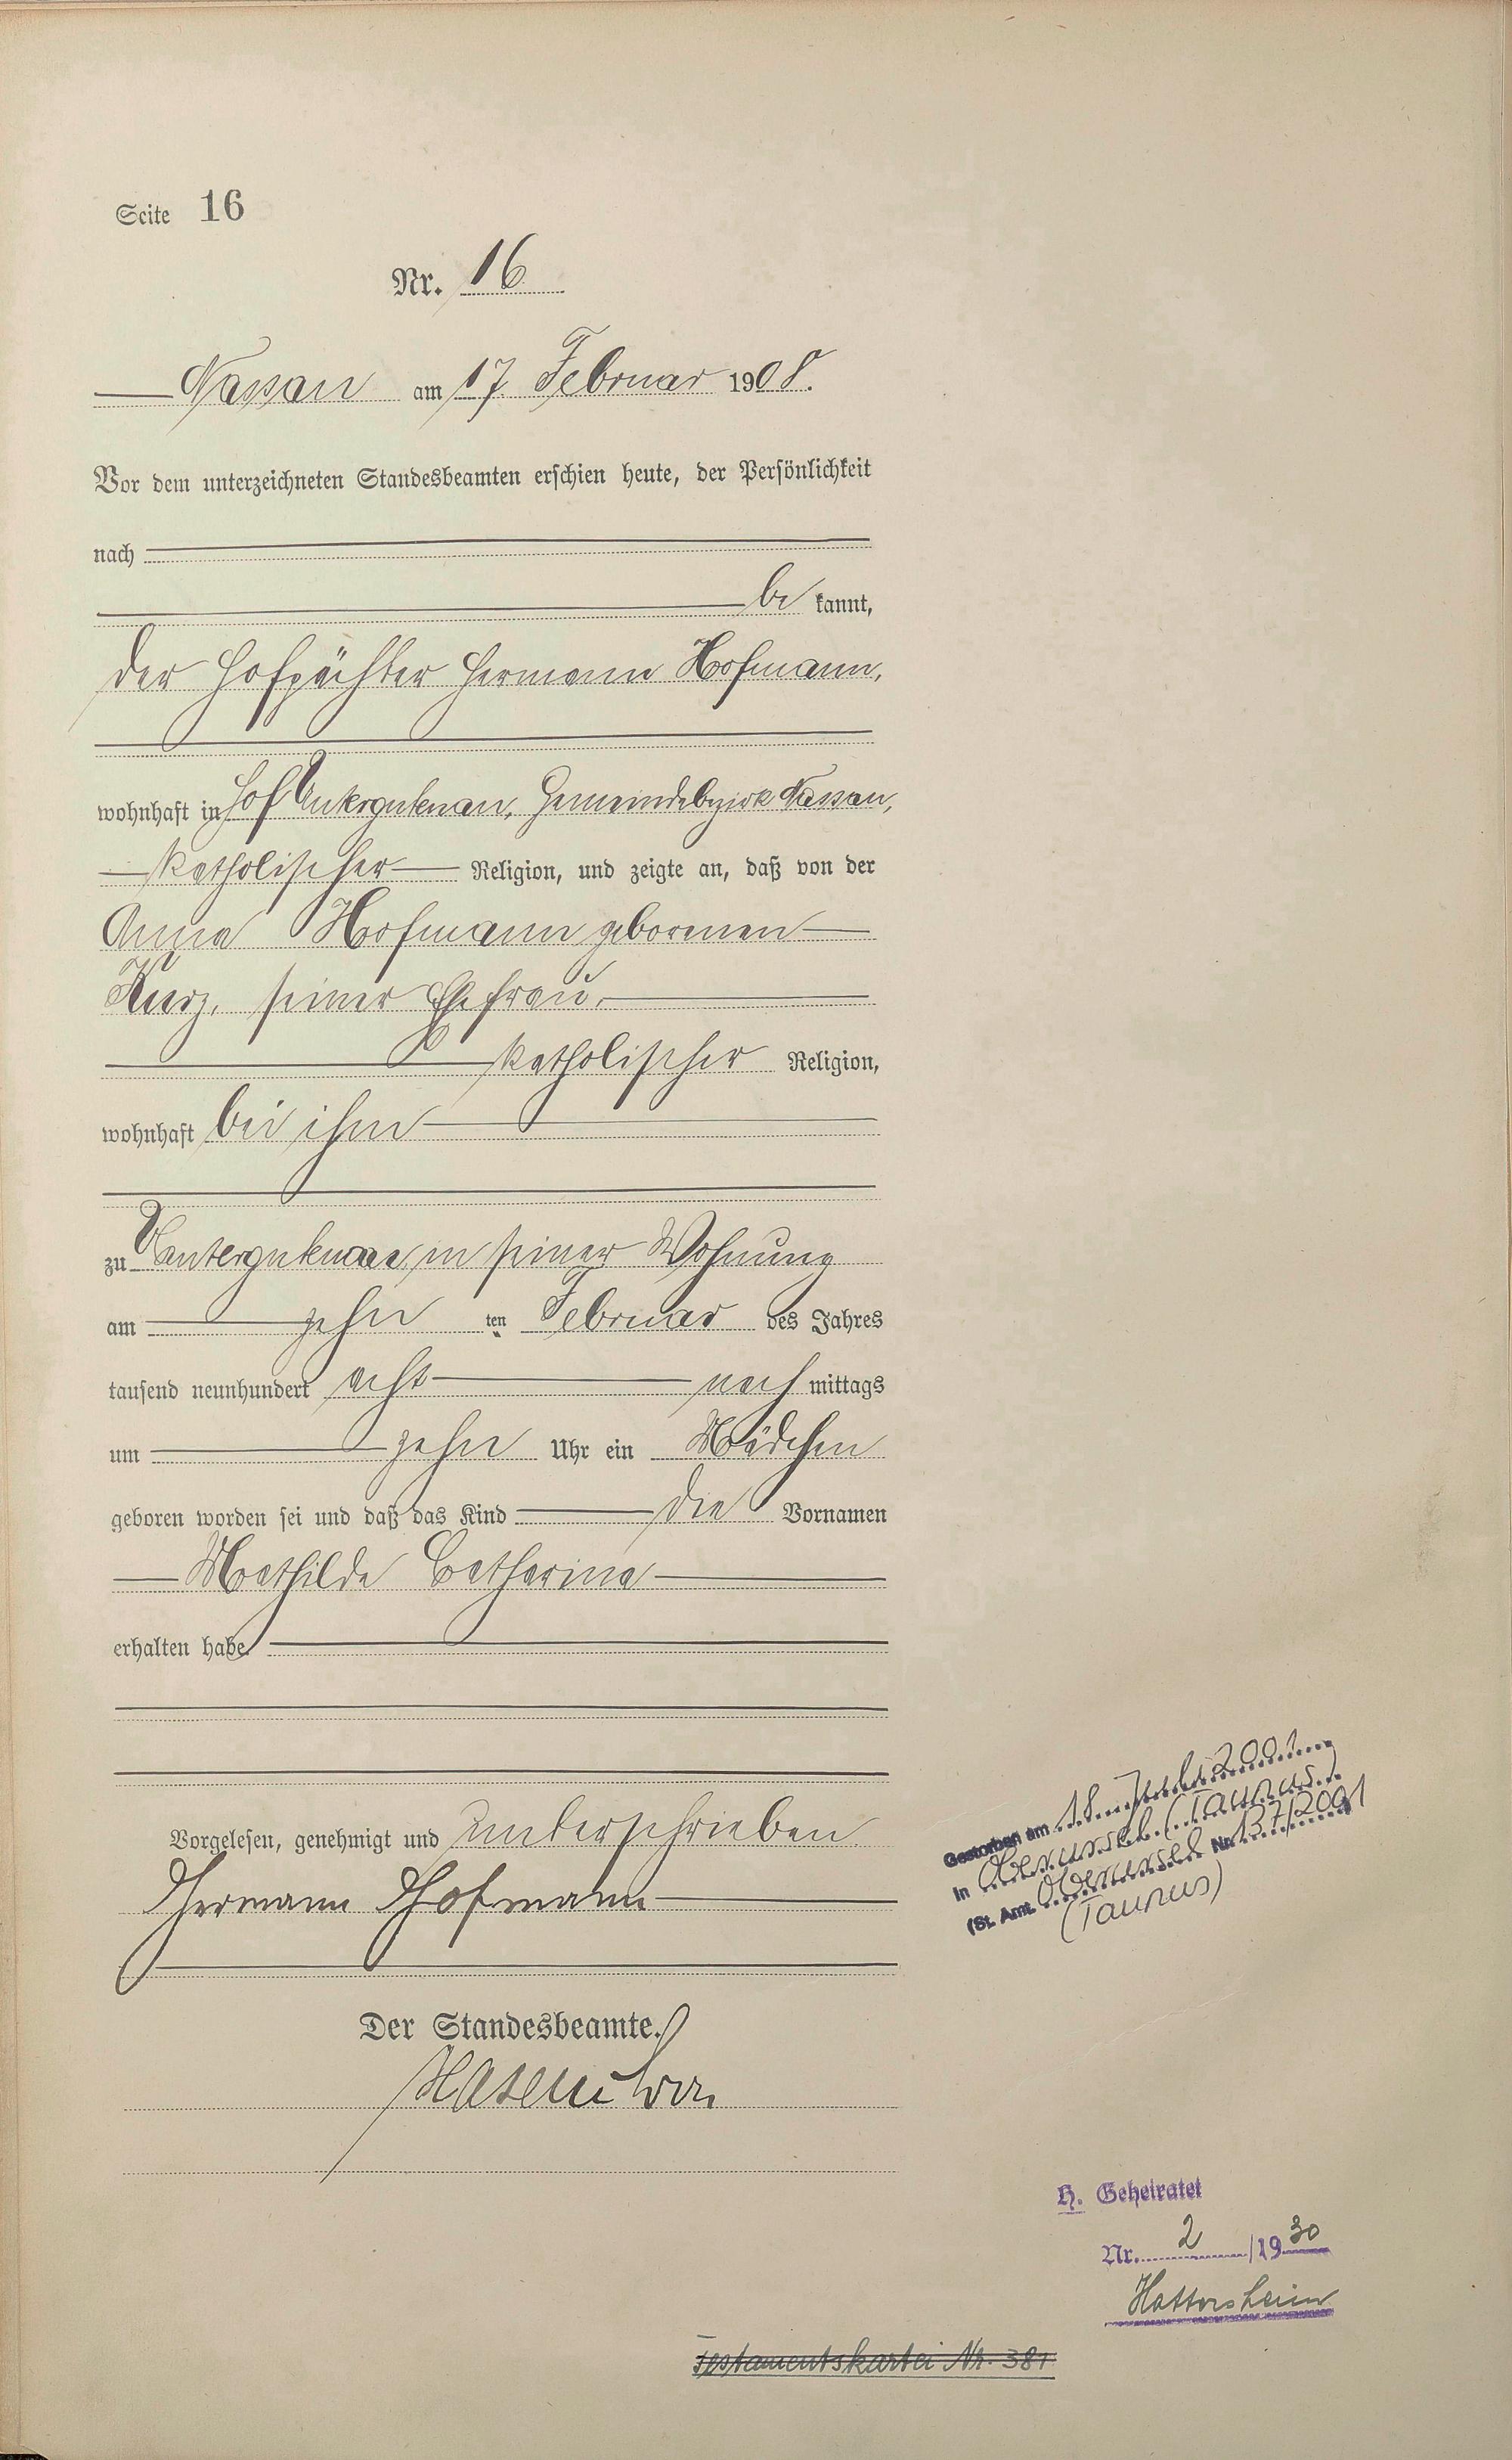 Seite 16
Nr. 16
Nassau am 17. Februar 1908.
Vor dem unterzeichneten Standesbeamten erschien heute, der Persönlichkeit
nach
be kannt,
der Hofpächter Hermann Hofmann,
wohnhaft in Hof Untergutenau, Gemeindebezirk Nassau,
katholischer Religion, und zeigte an, daß von der
Anna Hofmann geborenen
Kurz, seiner Ehefrau,
katholischer Religion,
wohnhaft bei ihm
zu Untergutenau in seiner Wohnung
am zehn ten Februar des Jahres
tausend neunhundert acht nach mittags
um zehn Uhr ein Mädchen
geboren worden sei und daß das Kind die Vornamen
Mathilde Catharina
erhalten habe
Vorgelesen, genehmigt und unterschrieben
Hermann Hofmann
Der Standesbeamte.
Gestorben am 18. Juli 2001
in Oberursel (Taunus)
(St. Amt. Oberursel Nr. 137/2001
(Taunus)
H. Geheiratet
Nr. 2 /1930
Hattersheim
Testamentskartei Nr. 381